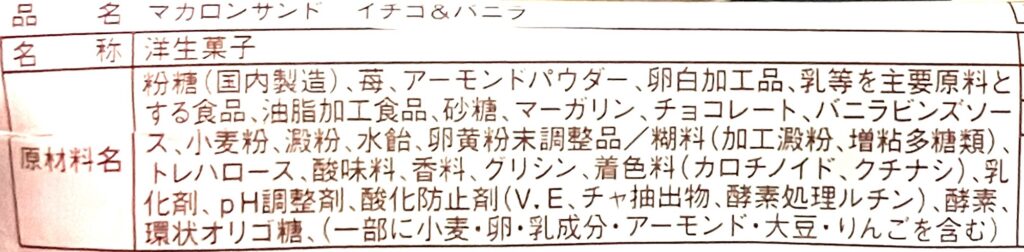 品名 マカロンサンド イチコ&バニラ
名称 洋生菓子
粉糖(国内製造)、苺、アーモンドパウダー、卵白加工品、乳等を主要原料と
する食品、油脂加工食品、砂糖、マーガリン、チョコレート、バニラビンズソー
原材料名 ス、小麦粉、澱粉、水飴、卵黄粉末調整品/糊料(加工澱粉、増粘多糖類)、
トレハロース、酸味料、香料、グリシン、着色料(カロチノイド、クチナシ)、乳
化剤、pH調整剤、酸化防止剤(V.E、チャ抽出物、酵素処理ルチン)、酵素、
環状オリゴ糖、(一部に小麦・卵・乳成分・アーモンド・大豆・りんごを含む)